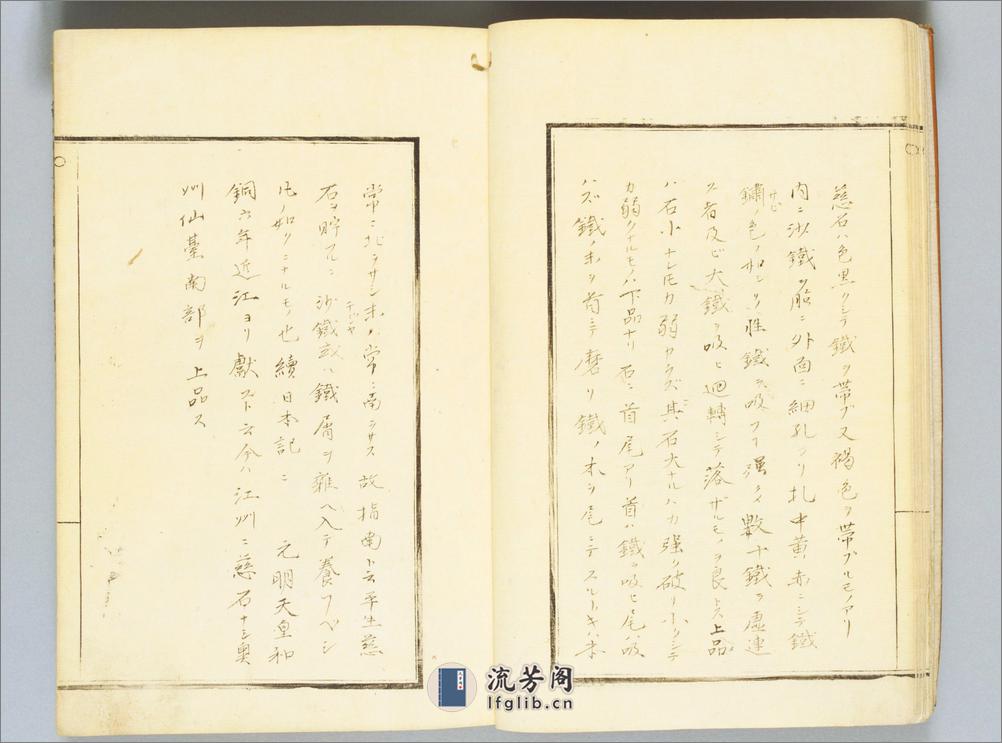 慈石ハ色黒クシテ鐵ヲ帶ブ又褐色ヲ帶ブルモノアリ
内ニ沙鐵ヲ 外面ニ細孔アリ孔中黄赤ニシテ鐵
鏽ノ色ノ如シ 性鐵ヲ吸フ 強クメ數十鐵ヲ虚連
サビ
ス者及ビ大鐵ヲ吸ヒ廻轉シテ落ザルモノヲ良トス上品
ハ石小ナレ𪜈力弱カラズ其石大ナルハ力強ク破リ小クシテ
力弱クナルモノハ下品ナリ石ニ首尾アリ首ハ鐵ヲ吸ヒ尾ハ吸
ハズ鐵ノ末ヲ首ニテ磨リ鐵ノ 尾ニテスルトキハ本
常ニ北ヲサシ末ハ常ニ南ヲサス故指南ト云平生慈
石ヲ貯フルニ沙鐵或ハ鐵屑ヲ雜ヘ入テ養フベシ
ノ如クニナルモノ也續日本記ニ 元明天皇和
銅六年近江ヨリ獻ズト云今ハ江州ニ慈石ナシ奥
州仙臺南部ヲ上品ス
流芳阁
lfglib.cn